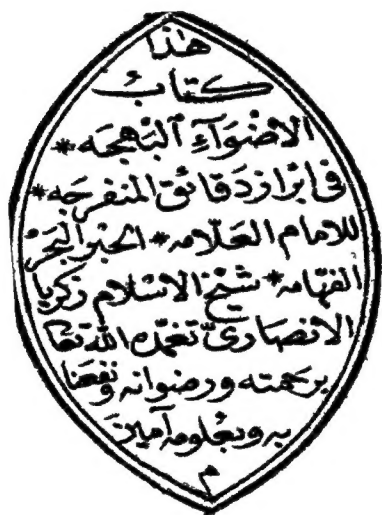 هٰذا
كتاب
الاضوآء البهجه *
فى ابراز دقائق المنفرجه *
للامام العلامه * الحبر البحر
الفهامه * شيخ الاسلام زكريا
الانصارىّ تغمده الله تعا
برحمته ورضوانه ونفعنا
به وبعلومه آمين
م